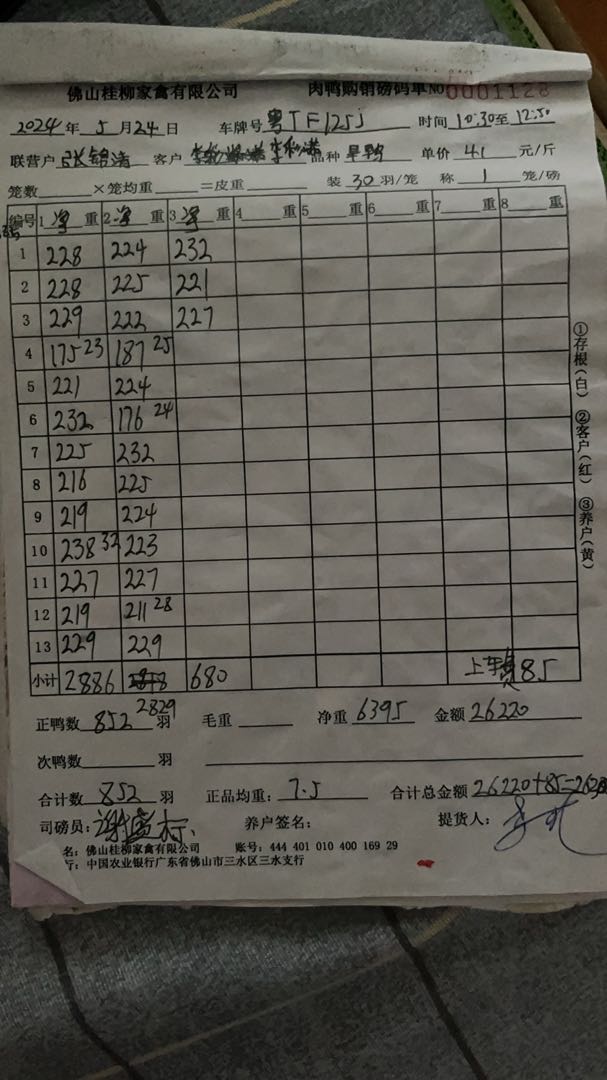 佛山桂柳家禽有限公司 肉鸭购销磅码单 NO 0001128
2024 年 5 月 24 日 车牌号 粤TF125J 时间 10:30至 12:50
联营户 张锦涛 客户 品种 旱鸭 单价 41 元/斤
笼数 ×笼均重 =皮重 装 30 羽/笼 称 1 笼/磅
编号 1 净 重 2 净 重 3 净 重 4 重 5 重 6 重 7 重 8 重
1 228 224 232
2 228 225 221
3 229 222 227
4 175 23 187 25
5 221 224
6 232 176 24
7 225 232
8 216 225
9 219 224
10 238 32 223
11 227 227
12 219 211 28
13 229 229
小计 2886 680 上车费85
2829
正鸭数 852 羽 毛重 净重 6395 金额 26220
次鸭数 羽
合计数 852 羽 正品均重: 7.5 合计总金额 26220+85=
司磅员: 养户签名: 提货人:
名: 佛山桂柳家禽有限公司 账号: 444 401 010 400 169 29
行: 中国农业银行广东省佛山市三水区三水支行
①存根(白) ②客户(红) ③养户(黄)